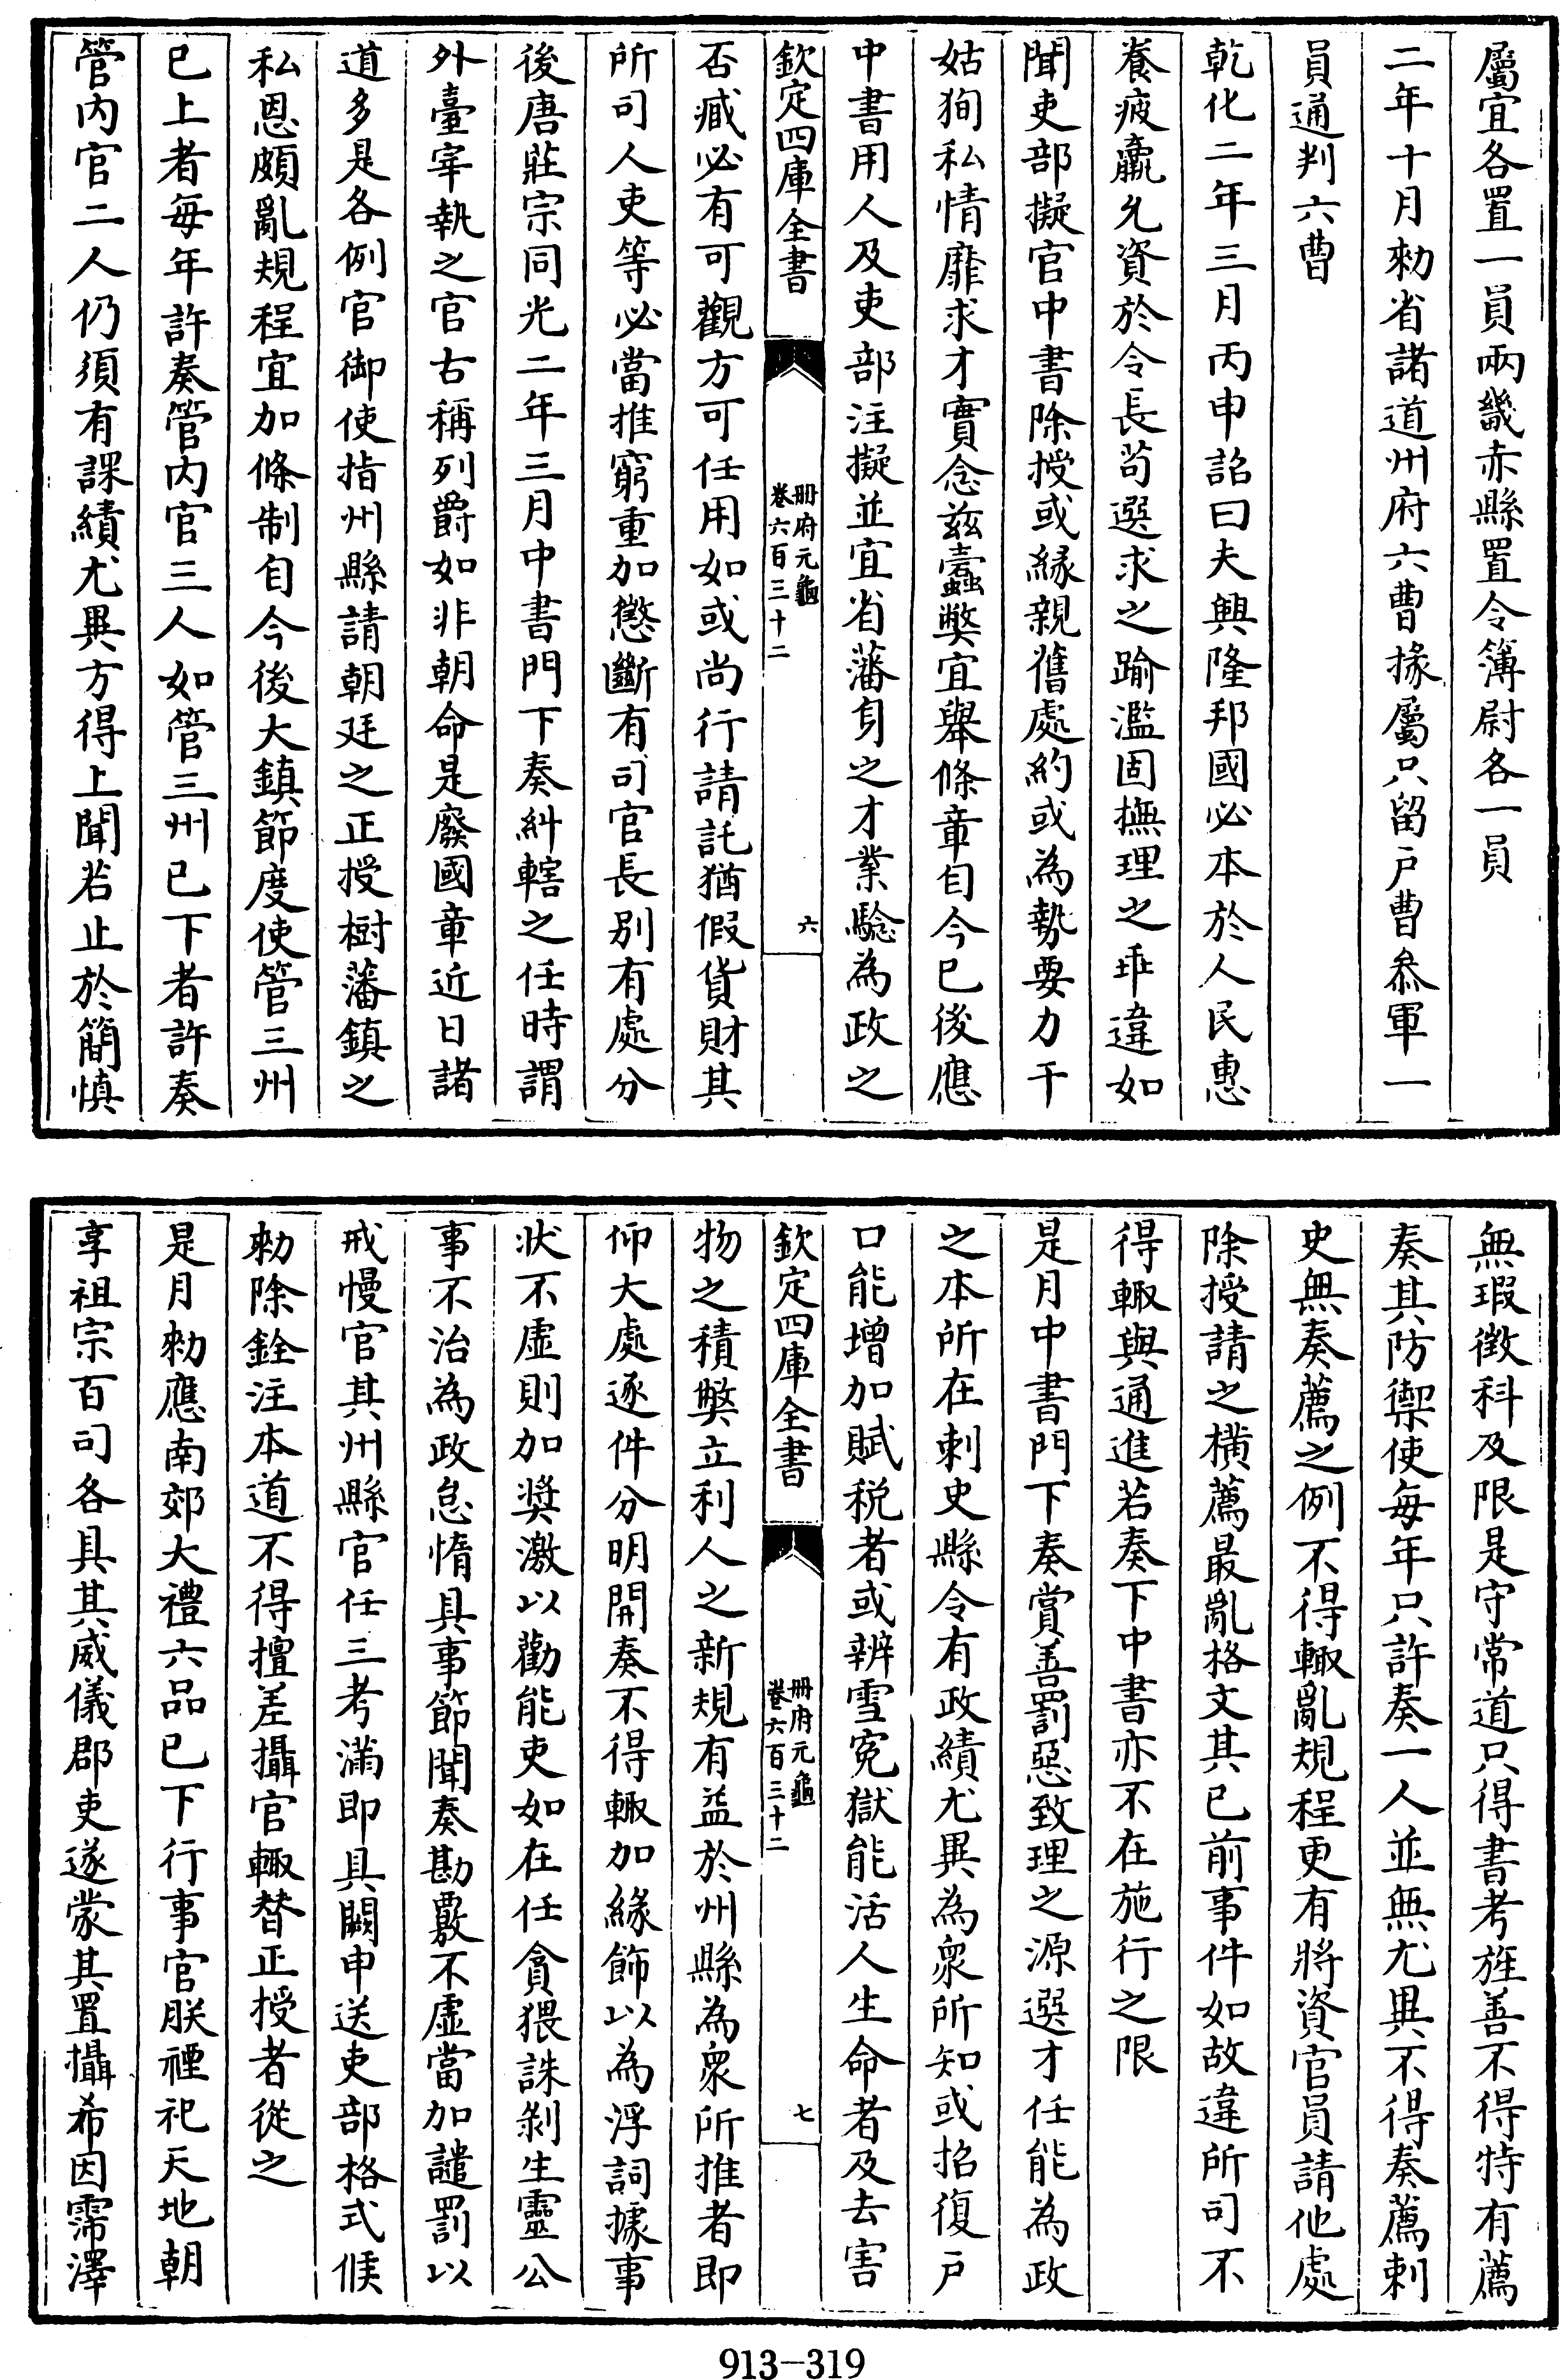 屬宜各置一員兩畿赤縣置令簿尉各一員
二年十月勑省諸道州府六曹掾屬只留戶曹叅軍一
員通判六曹
乾化二年三月丙申詔曰夫興隆邦國必本於人民惠
養疲羸允資於令長苟選求之踰濫固撫理之乖違如
聞吏部擬官中書除授或緣親舊處約或為勢要力干
姑狥私情靡求才實念兹蠹弊宜舉條章自今已後應
中書用人及吏部注擬並宜省藩身之才業驗為政之
欽定四庫全書
册府元龜
卷六百三十二
六
否臧必有可觀方可任用如或尚行請託猶假貨財其
所司人吏等必當推窮重加懲斷有司官長別有處分
後唐莊宗同光二年三月中書門下奏糾轄之任時謂
外臺宰執之官古稱列爵如非朝命是廢國章近日諸
道多是各列官御使指州縣請朝廷之正授樹藩鎮之
私恩頗亂規程宜加條制自今後大鎮節度使管三州
已上者每年許奏管内官三人如管三州已下者許奏
管内官二人仍須有課績尤異方得上聞若止於簡慎
無瑕徴科及限是守常道只得書考旌善不得特有薦
奏其防禦使每年只許奏一人並無尤異不得奏薦刺
史無奏薦之例不得輙亂規程更有將資官員請他處
除授請之横薦最亂格文其已前事件如故違所司不
得輙與通進若奏下中書亦不在施行之限
是月中書門下奏賞善罰惡致理之源選才任能為政
之本所在刺史縣令有政績尤異為衆所知或招復戶
口能增加賦税者或辨雪寃獄能活人生命者及去害
欽定四庫全書
册府元龜
卷六百三十二
七
物之積弊立利人之新規有益於州縣為衆所推者即
仰大處逐件分明開奏不得輙加緣飾以為浮詞據事
狀不虛則加奬激以勸能吏如在任貪猥誅剝生靈公
事不治為政怠惰具事節聞奏勘覈不虛當加譴罰以
戒慢官其州縣官任三考滿即具闕申送吏部格式候
勑除銓注本道不得擅差攝官輙替正授者從之
是月勑應南郊大禮六品已下行事官朕禋祀天地朝
享祖宗百司各具其威儀郡吏遂蒙其置攝希因霈澤
913-319